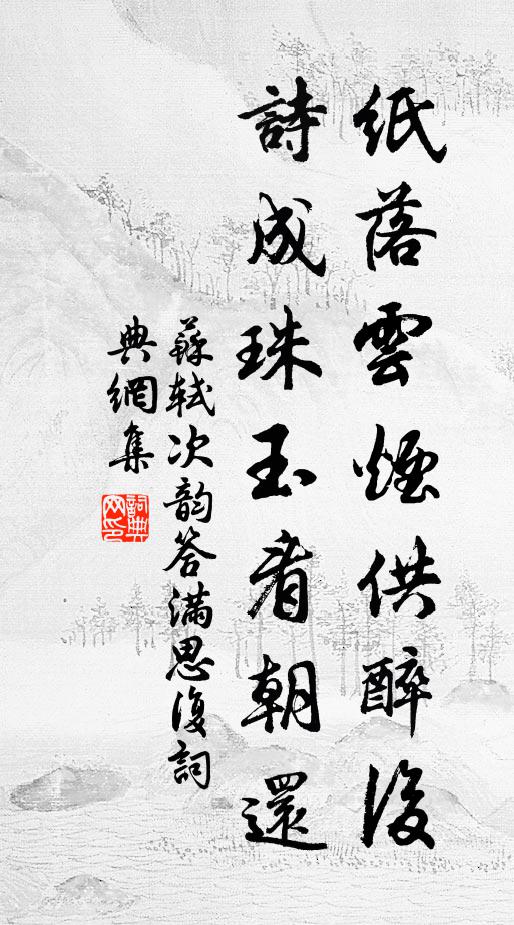 紙落雲煙供醉後
詩成珠玉看朝還
蘇軾次韵答滿思復詞
典網集
詞典網印